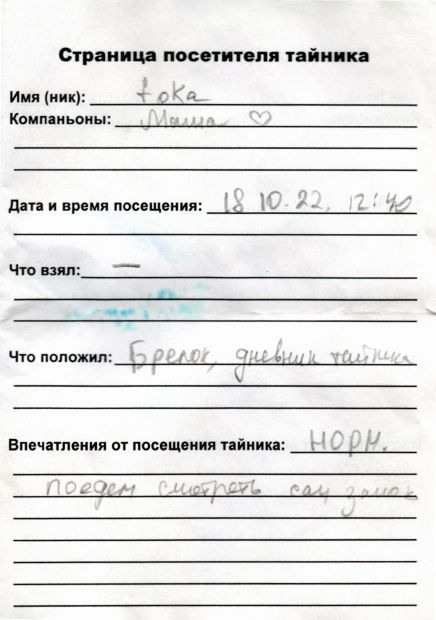 Страница посетителя тайника
Имя (ник): foka
Компаньоны: Маша ♡
Дата и время посещения: 18.10.22, 12:40
Что взял: —
Что положил: Брелок, дневник тайника
Впечатления от посещения тайника: НОРМ.
поедем смотреть сам замок